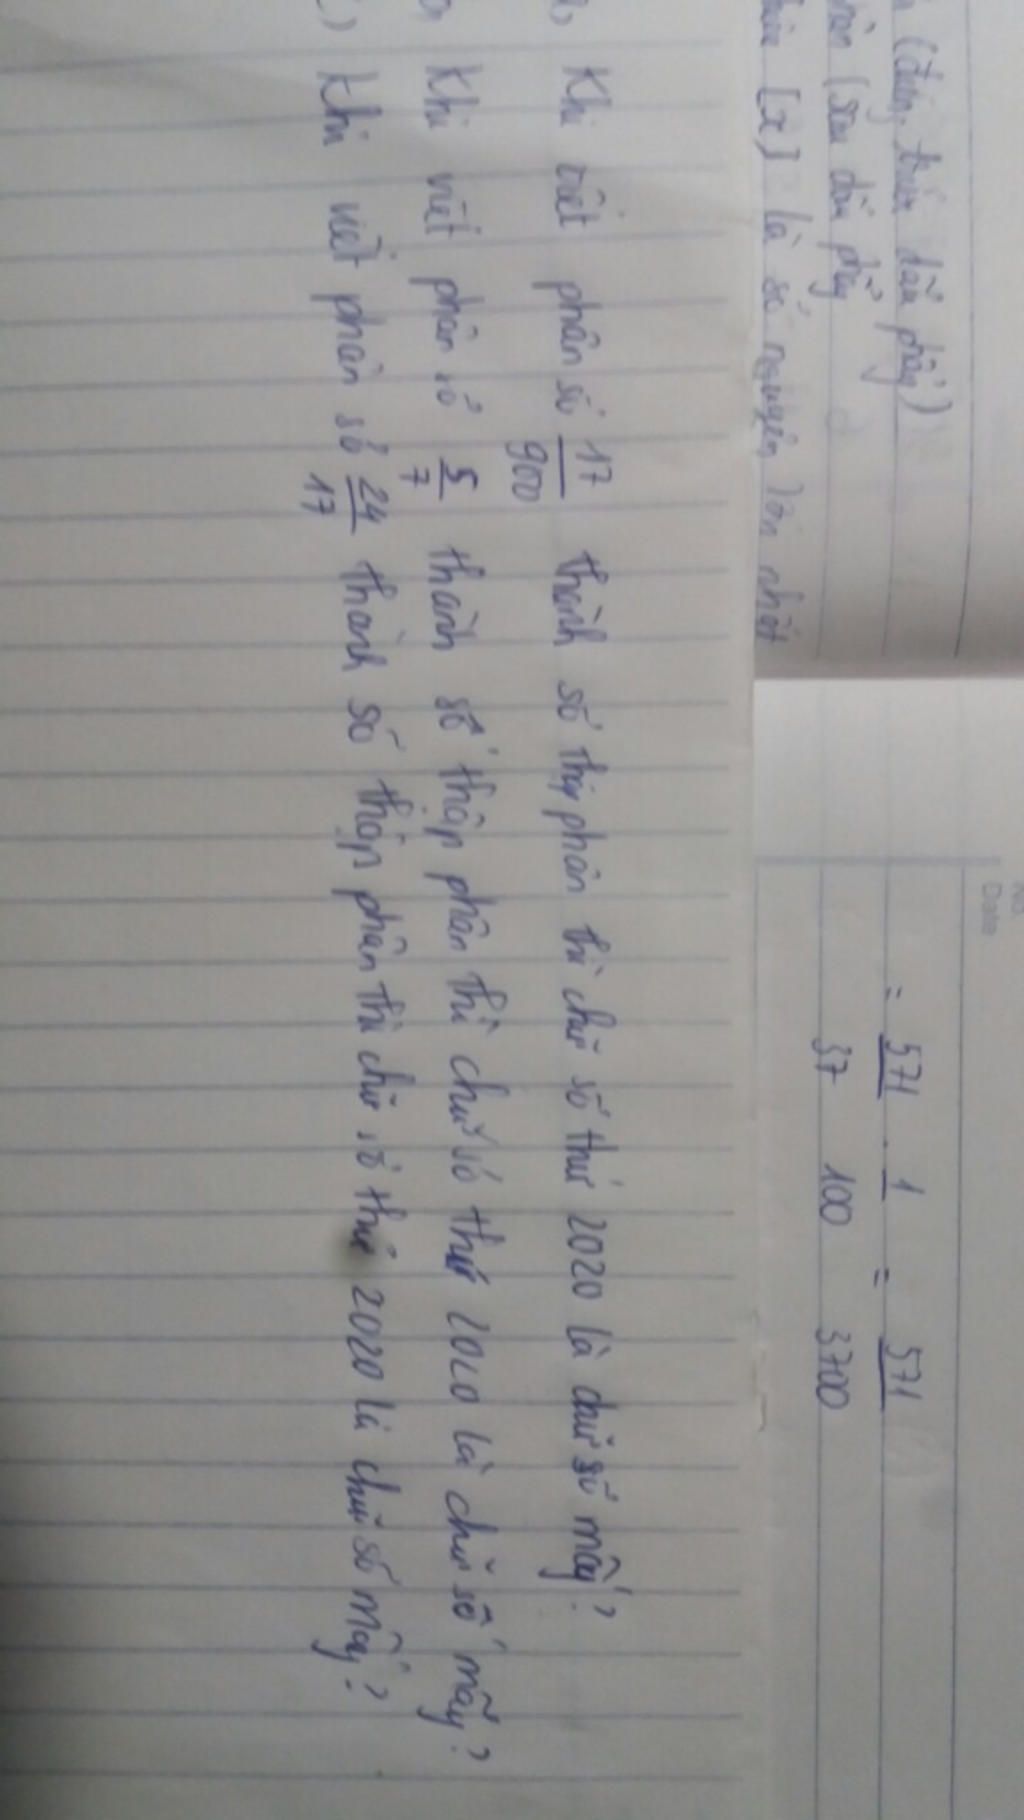 No.
Date
= 571/37 . 1/100 = 571/3700
(đứng, trên dấu phẩy)
(sau dấu phẩy
[x] là số nguyên lớn nhất
Khi viết phân số 17/900 thành số thập phân thì chữ số thứ 2020 là chữ số mấy?
Khi viết phân số 5/7 thành số thập phân thì chữ số thứ 2020 là chữ số mấy?
c) Khi viết phân số 24/17 thành số thập phân thì chữ số thứ 2020 là chữ số mấy?